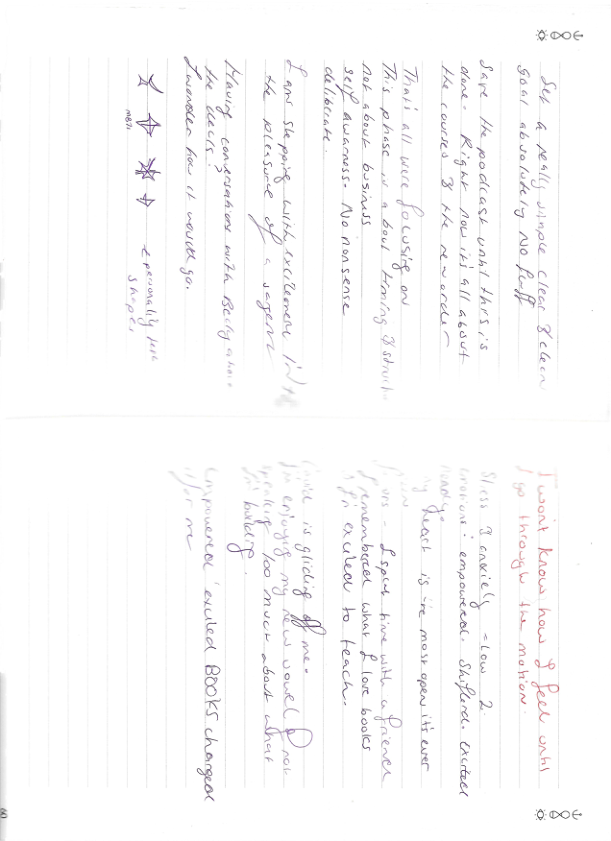 Set a really simple clear & clean
goal absolutely no fluff
Save the podcast until this is
done. Right now it's all about
the courses & the new order
That's all were focusing on
This phase is about timing &
not about business
self awarness. No nonsense
deliberate.
I am stepping with excitement in
the pleasure of a
Having conversations with
the decks?
I wonder how it would go.
MBTI
personality test
shapes
I won't know how I feel until
I go through the motion.
Stress & anxiety - low 2
emotions: empowered. Shifted. excited
heart is the most open it's ever
I spent time with a friend
remembered what I love books
excited to teach.
is gliding off me.
I'm enjoying my new vowel & not
speaking too much about what
I'm building.
empowered excited BOOKS changed
for me